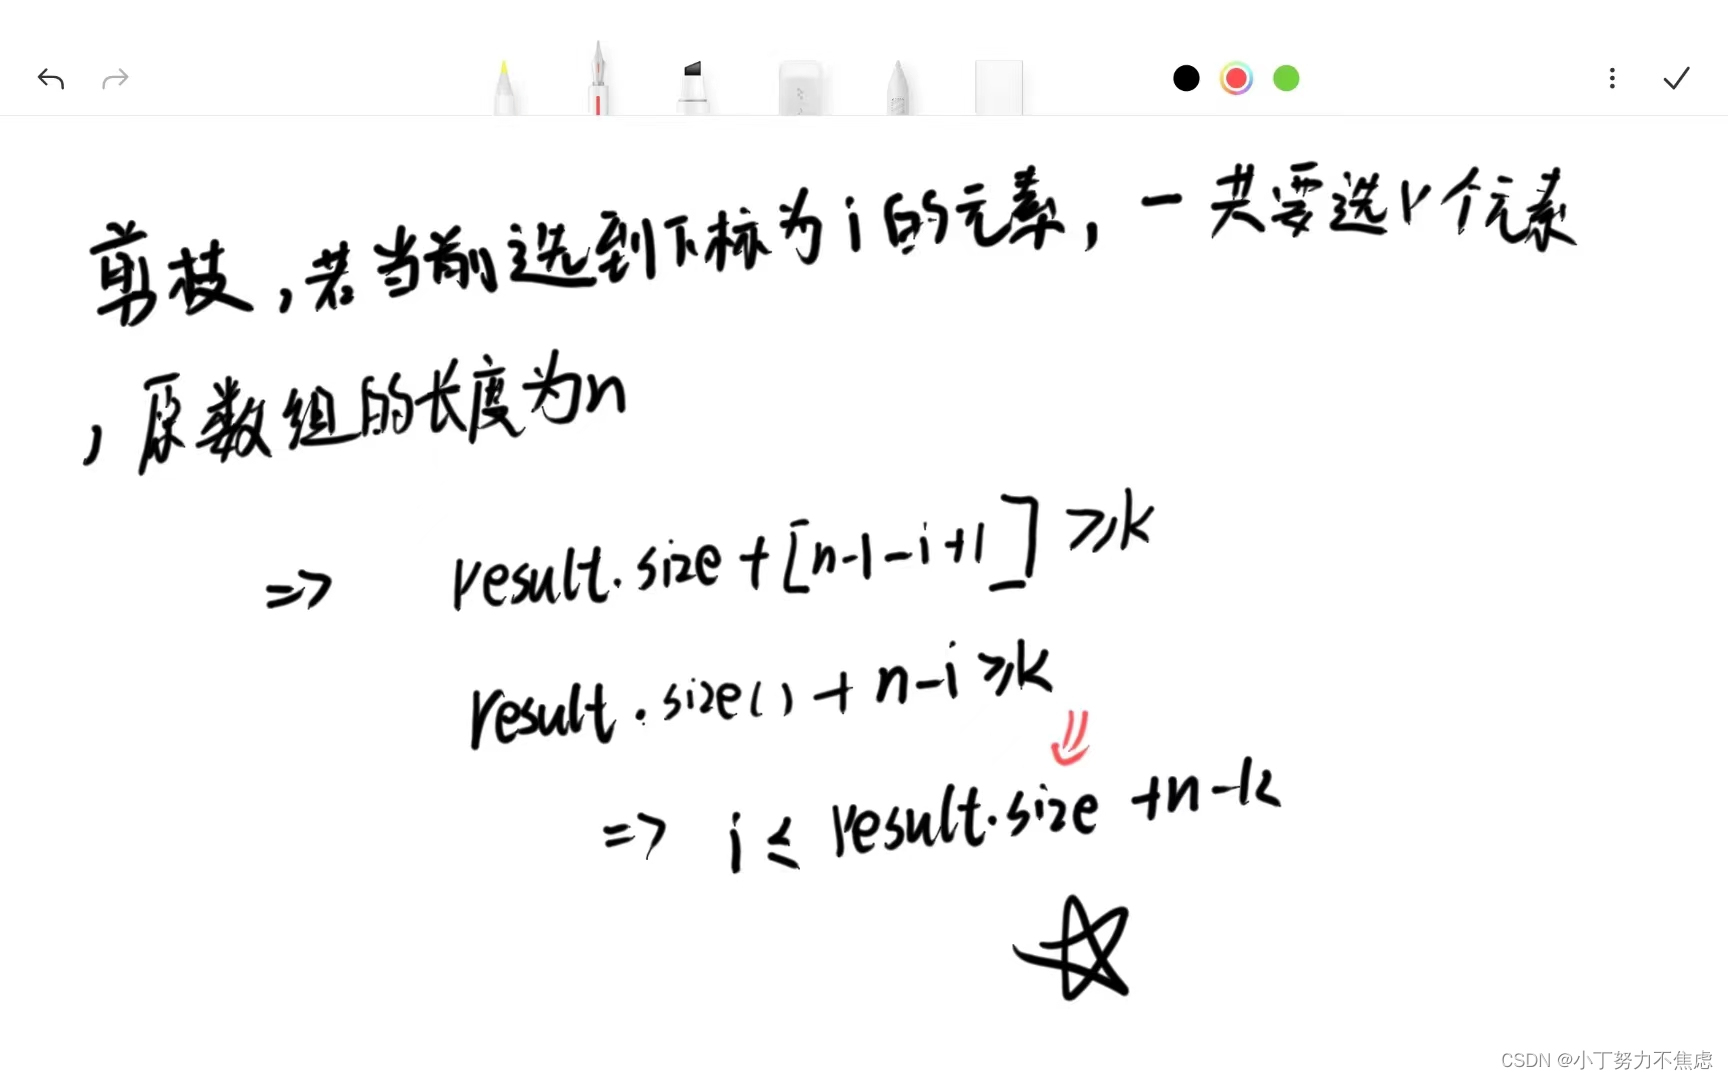 剪枝，若当前选到下标为i的元素，一共要选k个元素
，原数组的长度为n
=> result.size+[n-1-i+1]≥k
result.size()+n-i≥k
=> i≤result.size+n-k
CSDN @小丁努力不焦虑